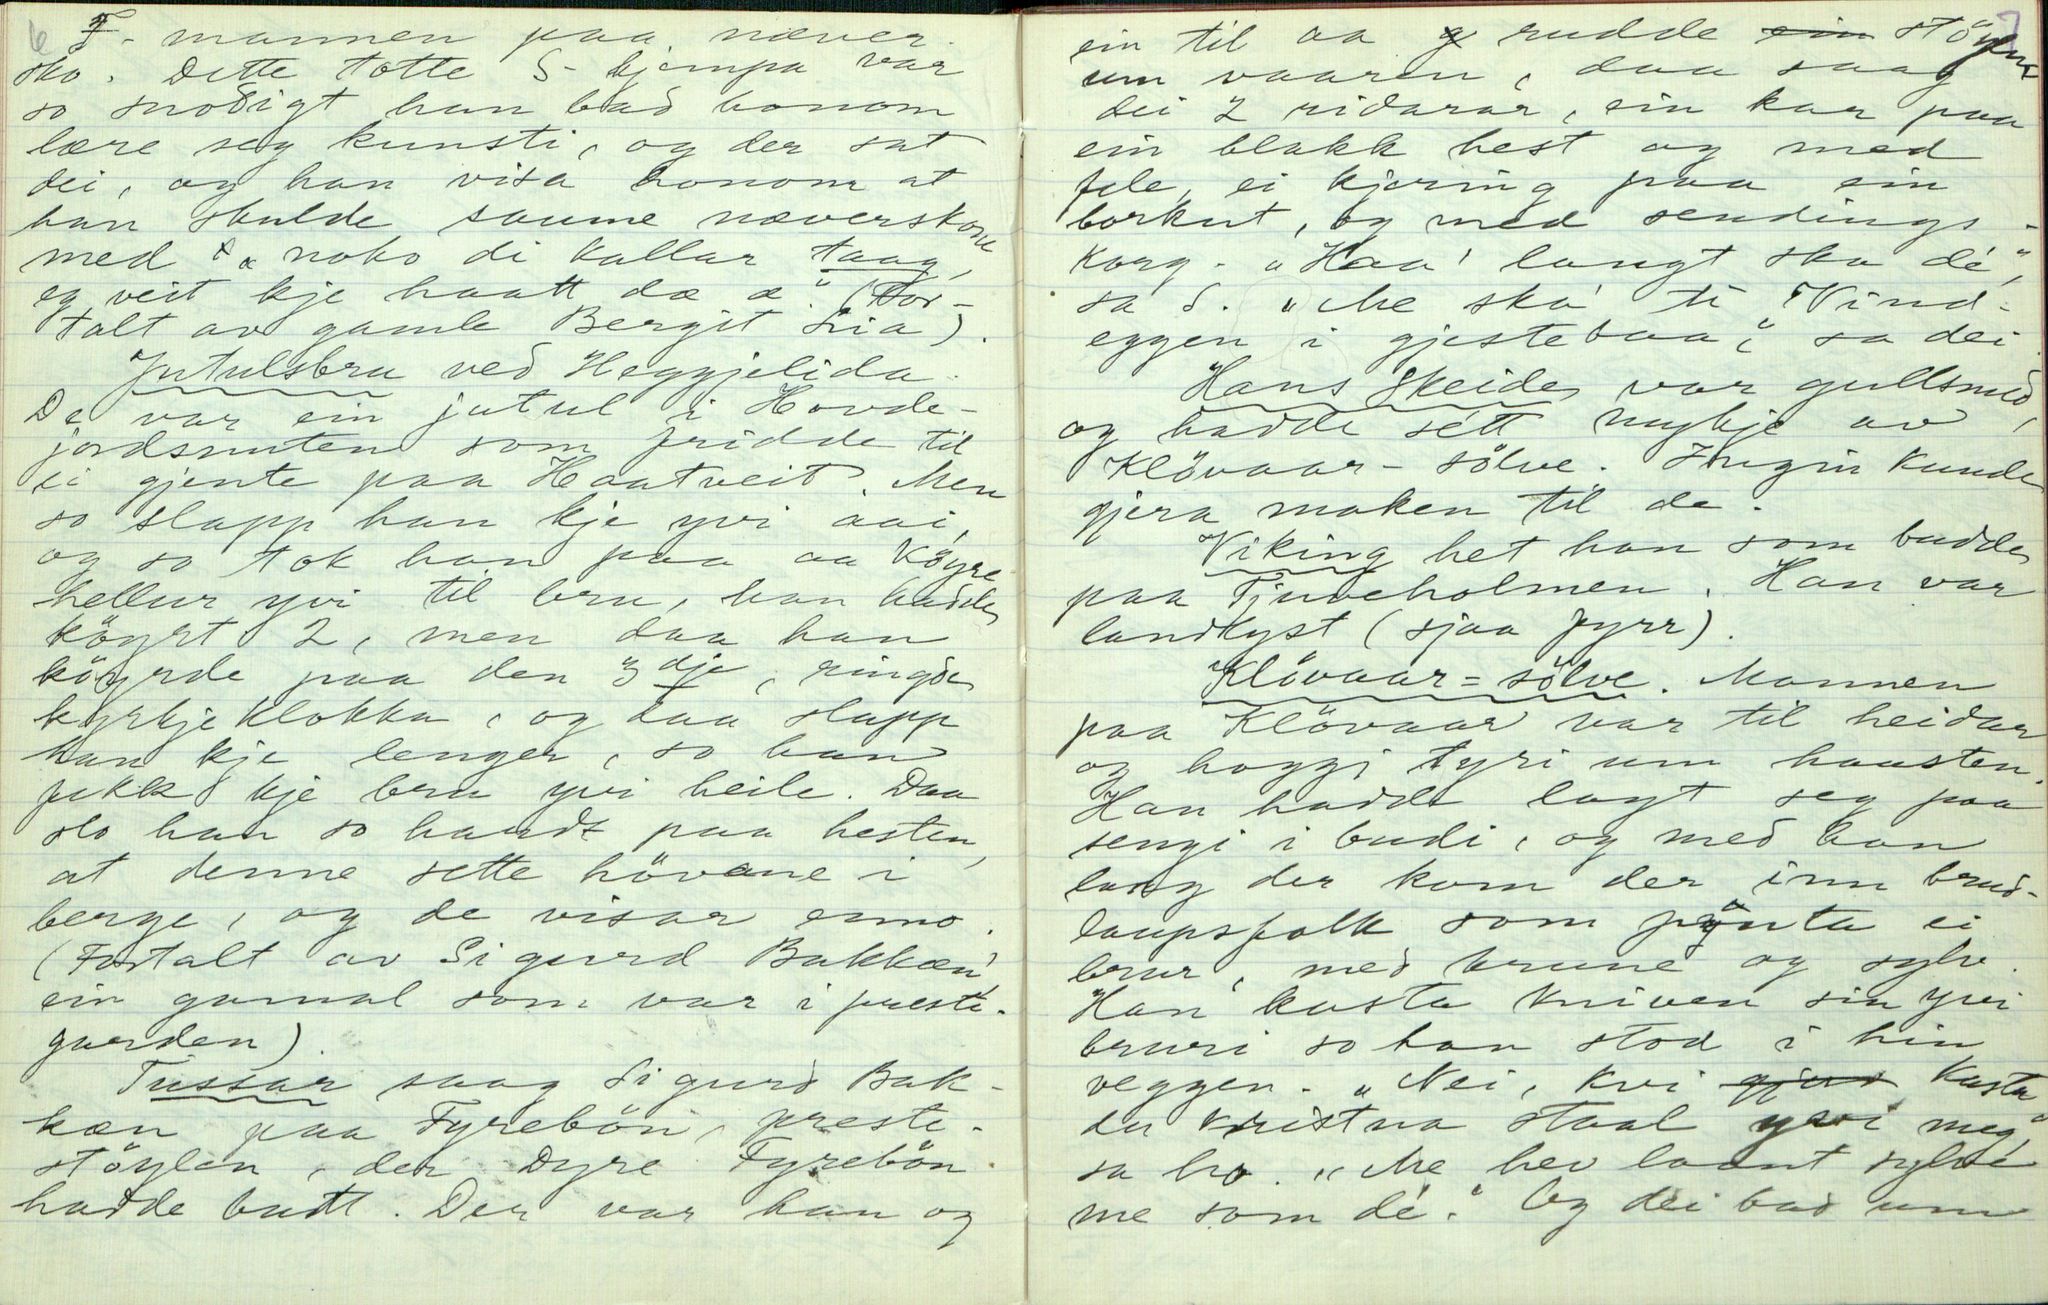 6
F- mannen paa næver-
sko. Dette totte S- kjempa var
so snodigt han bad honom
lære seg kunsti, og der sat
dei, og han visa honom at
han skulde saume næverskone
med "noko di kallar taag,
eg veit kje haatt dæ æ". (For-
talt av gamle Bergit Lia).
Jutulsbru ved Heggjelida.
De var ein jutul i Hovde-
jordsnuten som fridde til
ei gjente paa Haatveit. Men
so slapp han kje yvi aai,
og so tok han paa aa köyre
hellur yvi til bru, han hadde
köyrt 2, men daa han
köyrde paa den 3dje, ringde
kyrkjeklokka, og daa slapp
han kje lenger, so han
fekk kje bru yvi heile. Daa
slo han so hardt paa hesten,
at denne sette hövane i
berge, og de visar enno.
(Fortalt av Sigurd Bakkæn,
ein gamal som var i preste-
garden).
Tussar saag Sigurd Bak-
kæn paa Fyrebön, preste-
stöylen, der Dyre Fyrebön
hadde butt. Der var han og
7
ein til aa rudde ein stöylen
um vaaren, daa saag
dei 2 ridarar, ein kar paa
ein blakk hest og med
fele, ei kjering paa ein
borkut, og med sendings-
korg. "Haa' langt ska dé",
sa S. "Me ska' ti Vind-
eggen i gjestebaa," sa dei.
Hans Skeide var gullsmed,
og hadde sétt mykje av
Klövaar-sölve. Ingin kunde
gjera maken til de.
Viking het han som budde
paa Tjuveholmen. Han var
landkyst (sjaa fyrr).
Klövaar=sölve. Mannen
paa Klövaar var til heidar
og hoggj tyri um hausten.
Han hadde lagt seg paa
sengi i budi, og med han
laag der kom der inn brud-
laupsfolk som pynta ei
brur, med krune og sylv.
Han kasta kniven sin yvi
bruri so han stod i hin
veggen. "Nei, kvi gjord kasta
du kristna staal yvi meg",
sa ho. "Me hev laant sylve
me som dé." Og dei bad um